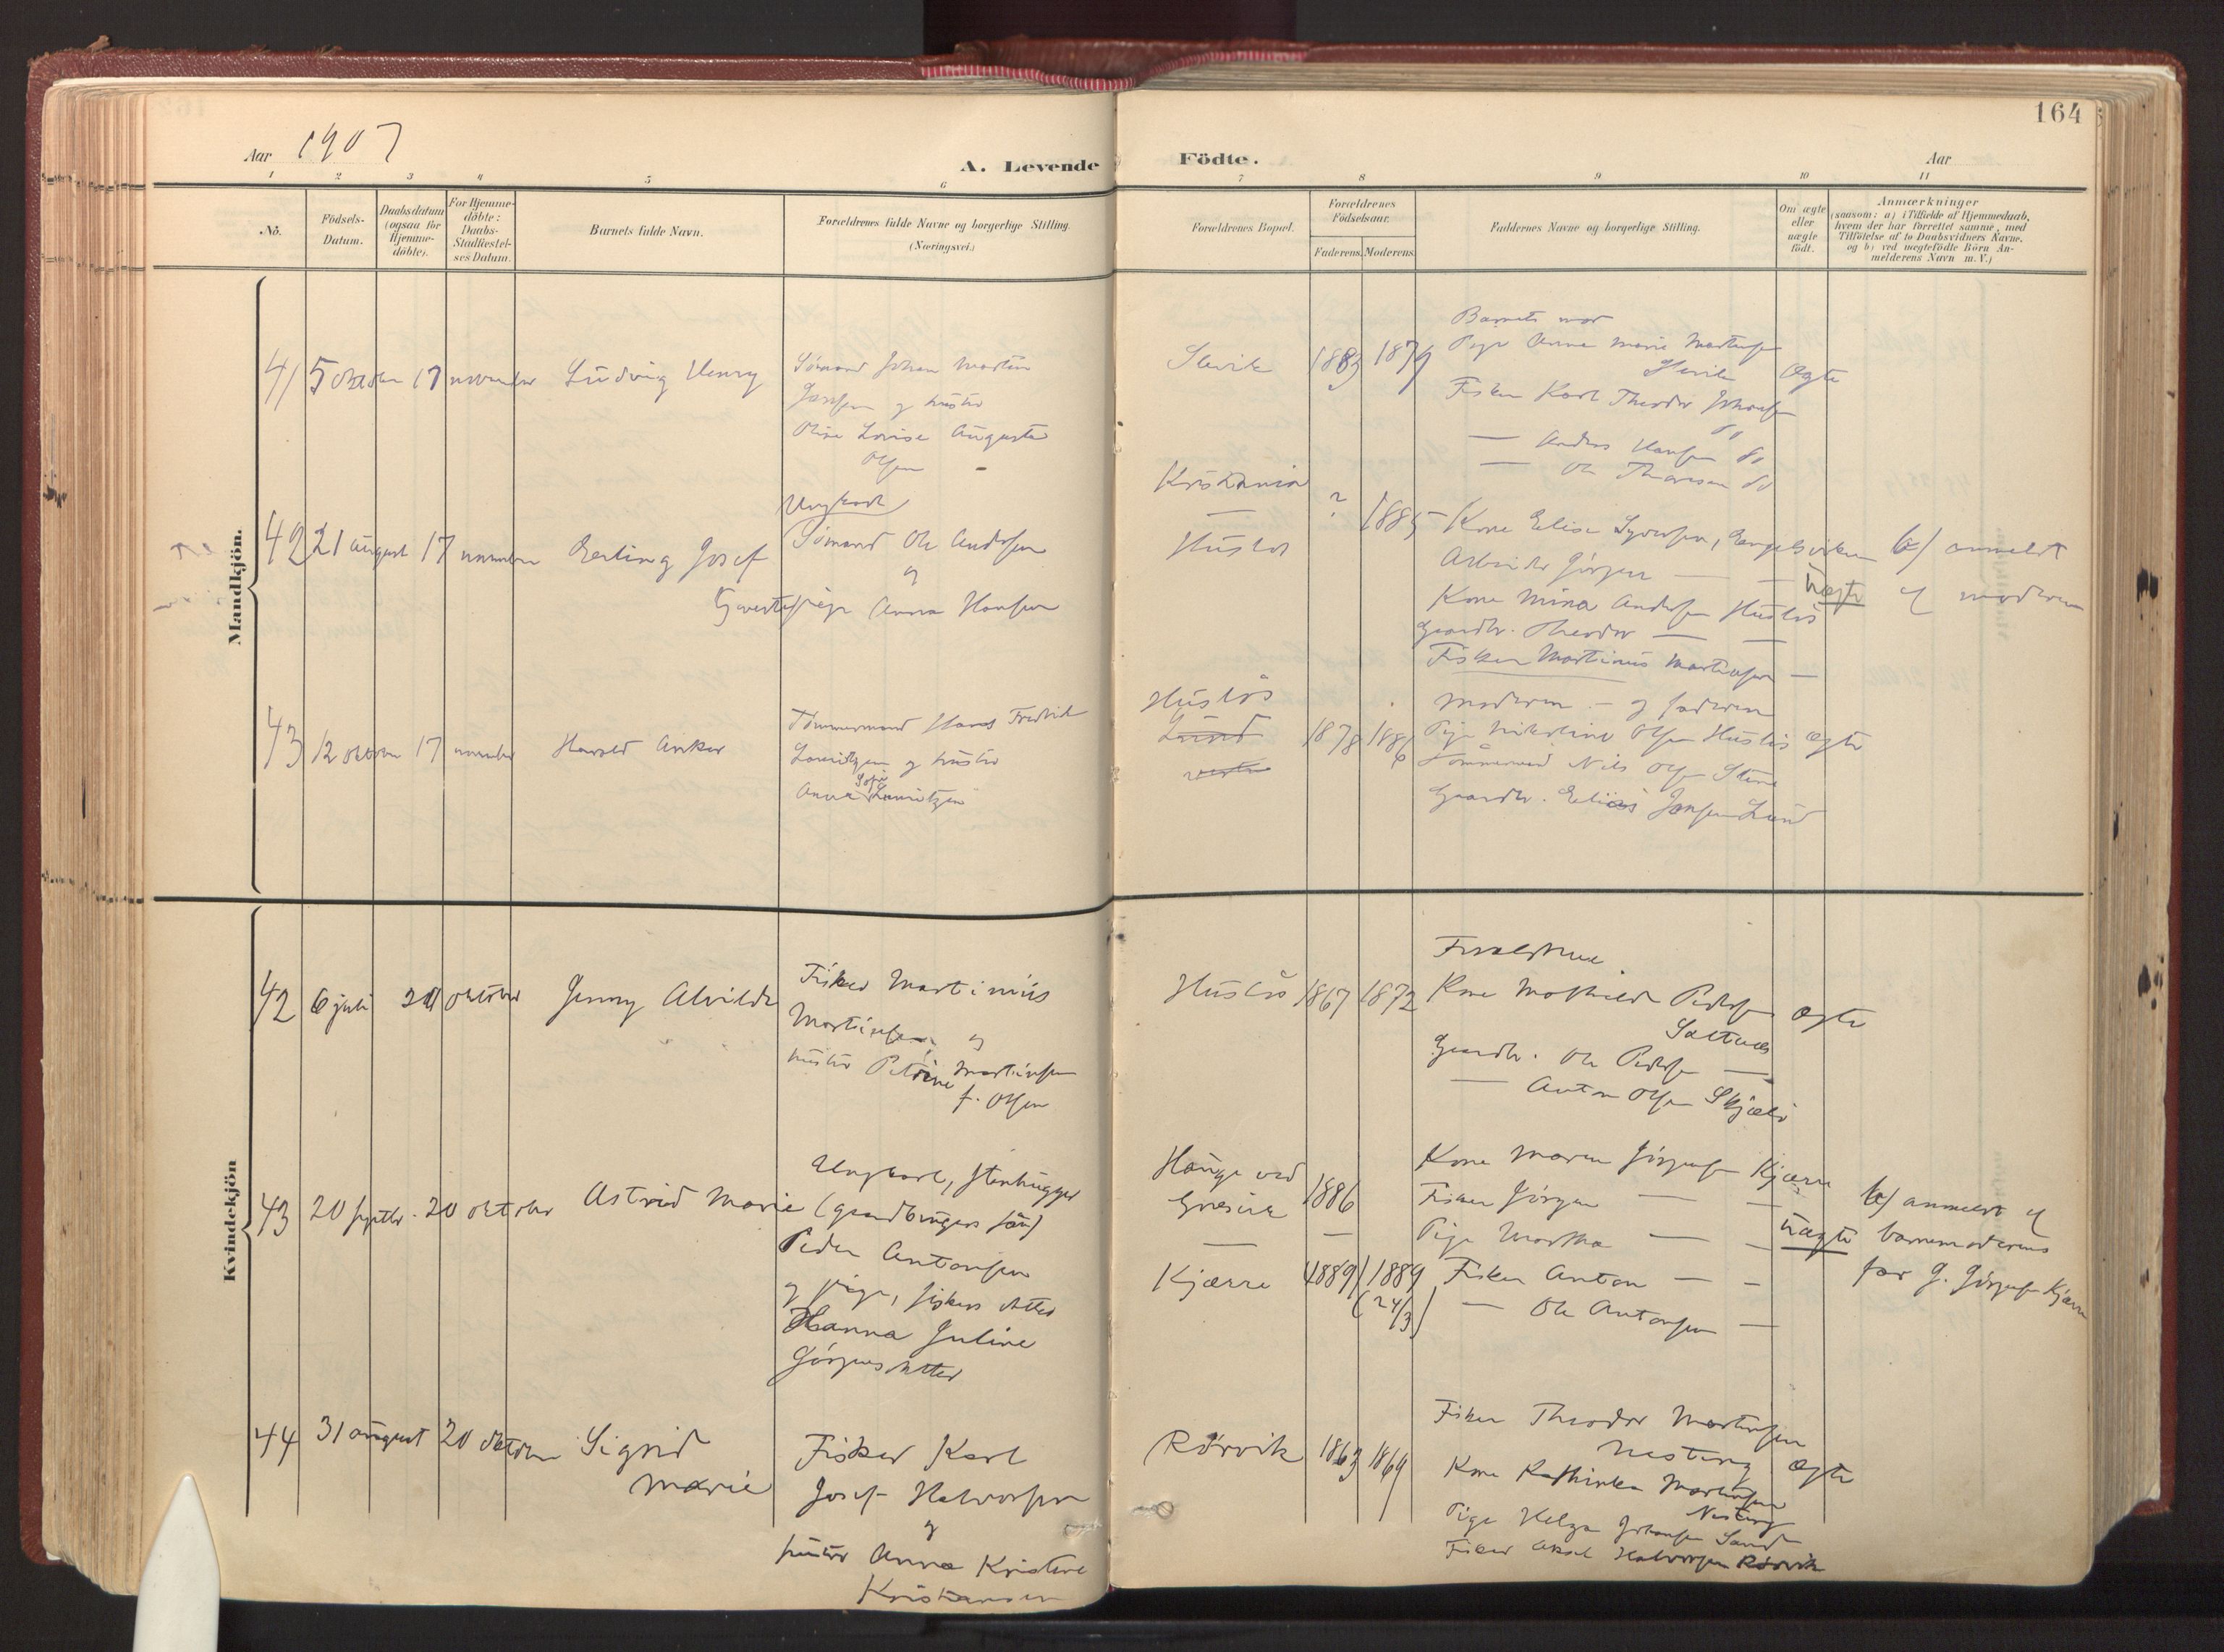 164
Aar 1907
A. Levende Födte.
Aar
1 2 3 4 5 6 7 8 9 10 11
No.
Födsels-Datum.
Daabsdatum (ogsaa for Hjemme-döbte).
For Hjemme-döbte: Daabs-Stadfæstel-ses Datum.
Barnets fulde Navn.
Forældrenes fulde Navne og borgerlige Stilling.
(Næringsvei.)
Forældrenes Bopæl.
Forældrenes Födselsaar.
Faderens. Moderens.
Faddernes Navne og borgerlige Stilling.
Om ægte eller uægte födt.
Anmærkninger
(saasom: a) i Tilfælde af Hjemmedaab,
hvem der har forrettet samme, med
Tilföielse af to Daabsvidners Navne,
og b) ved uægtefödte Börn An-
melderens Navn m. V.)
Mandkjön.
41 5 oktober 17 november Ludvig Henry
Sömand Johan Martin
og hustru
Oline Lovise Augusta
Olsen
1883 1879
Barnets mor
Pige Anna Marie
Fisker Karl Theodor Johansen
do
— Anders Hansen do
— Ole do
ægte
42 21 august 17 november Erling Josef
Ungkarl
Sömand Ole Andersen
og
pige Anna Hansen
Kristiania
—
Huslös
? 1885
Kone Elise
Arbeider Jörgen — —
Kone Mina Andersen Huslös
Gaardbr. Theodor — —
Fisker Martinus Martinsen —
uægte
b) anmeldt
af moderen
43 12 oktober 17 november Harald Anker
Tömmermand Hans Fredrik
Lauritzen og hustru
Anna Sofie Lauritzen
Huslös
Lund
vestre
1878 1886
Moderen — og faderen
Pige Nikoline Olsen Huslös
Tömmermand Nils Olsen Stene
Gaardbr. Elias Jensen Lund
ægte
Kvindekjön
42 6 juli 20 oktober Jenny Alvilde
Fisker Martinius
Martinsen og
hustru Petrine Martinsen
f. Olsen
Huslös 1867 1872
Forældrene
Kone Mathilde Pedersen
Saltnes
Gaardbr. Ole Pedersen —
— Anton Olsen Skjælö
ægte
43 20 septbr. 20 oktober Astrid Marie
Ungkarl, stenhugger
(gaardbrugers sön)
Peder Antonsen
og pige, fiskers datter
Hanna Juline
Jörgensdatter
Hauge ved
—
Kjærre
1886
—
(1889) 1889
(24/3)
Kone Maren Jörgensen Kjærre
Fisker Jörgen — —
Pige Martha — —
Fisker Anton — —
— Ole Antonsen —
uægte
b) anmeldt af
barnemoderens
far J. Jörgensen Kjærre
44 31 august 20 oktober Sigrid
Marie
Fisker Karl
Josef Halvorsen
og
hustru Anna Kristine
Kristiansen
Rörvik 1863 1864
Fisker Theodor Martinsen
Nesteng
Kone Kathinka Martinsen
Nesteng
Pige Helga Johansen Sand
Fisker Aksel Halvorsen Rörvik
ægte